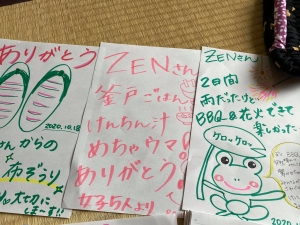 ありがとう
2020.10.18
さんからの
布ぞうり
大切に
しまーす!!
ZENさん
釜戸ごはん
けんちん汁
めちゃウマ!
ありがとう!
女子5人より
ZENさん
2日間
雨だったけど
BBQ&花火できて
楽しかった
ケロッケロッ
2020.